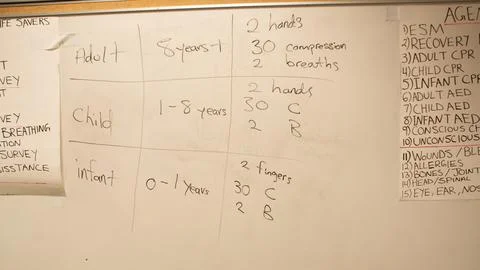 FE SAVERS
VEY
VEY
BREATHING
TION
SURVEY
SISSTANCE
Adult
8 years +
2 hands
30 compression
2 breaths
Child
1-8 years
2 hands
30 C
2 B
infant
0-1 years
2 fingers
30 C
2 B
AGEN
1) ESM
2) RECOVERY
3) ADULT CPR
4) CHILD CPR
5) INFANT CPR
6) ADULT AED
7) CHILD AED
8) INFANT AED
9) CONSCIOUS CH
10) UNCONSCIOUS
11) WOUNDS / BLE
12) ALLERGIES
13) BONES / JOINT
14) HEAD/SPINAL
15) EYE, EAR, NOS